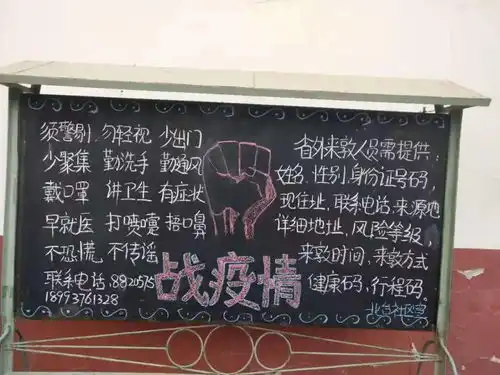 须警剔 勿轻视 少出门
少聚集 勤洗手 勤通风
戴口罩 讲卫生 有症状
早就医 打喷嚏 捂口鼻
不恐慌 不传谣
联系电话:8820575
18993761328
战疫情
省外来敦人员需提供:
姓名、性别、身份证号码,
现住址、联系电话、来源地
详细地址、风险等级,
来敦时间、来敦方式
健康码、行程码。
北台社区宣